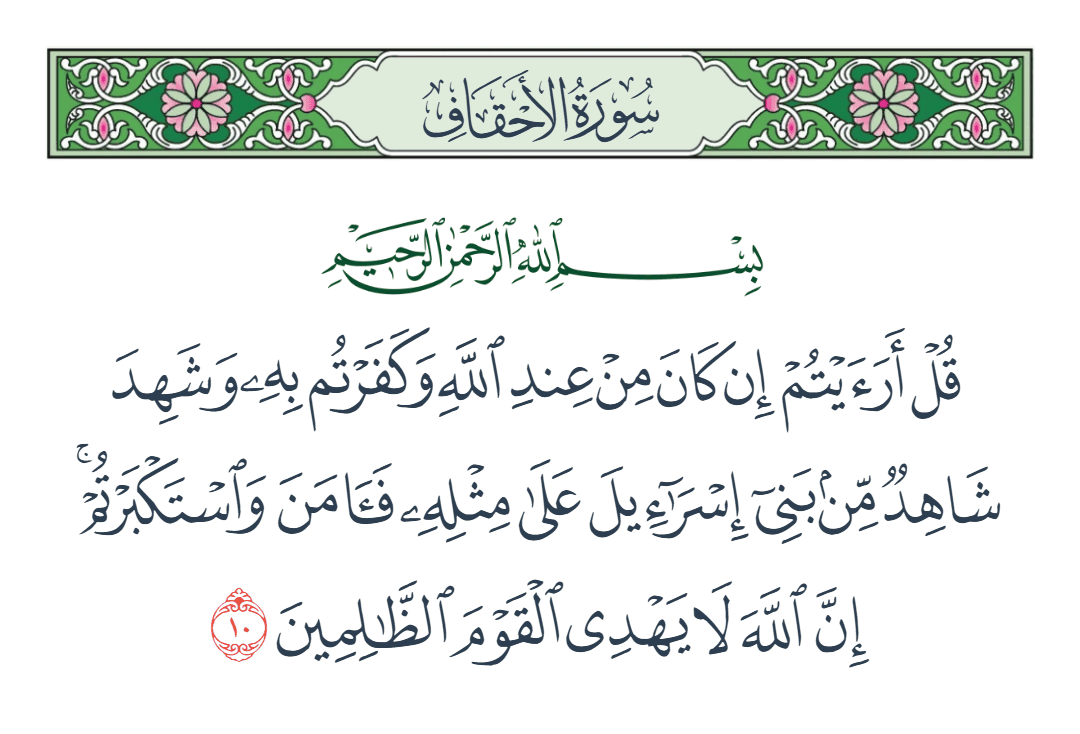 سُورَةُ الأَحْقَافِ
بِسْمِ ٱللَّهِ ٱلرَّحْمَٰنِ ٱلرَّحِيمِ
قُلْ أَرَءَيْتُمْ إِن كَانَ مِنْ عِندِ ٱللَّهِ وَكَفَرْتُم بِهِۦ وَشَهِدَ
شَاهِدٌ مِّنۢ بَنِىٓ إِسْرَٰٓءِيلَ عَلَىٰ مِثْلِهِۦ فَـَٔامَنَ وَٱسْتَكْبَرْتُمْ ۚ
إِنَّ ٱللَّهَ لَا يَهْدِى ٱلْقَوْمَ ٱلظَّـٰلِمِينَ ١٠